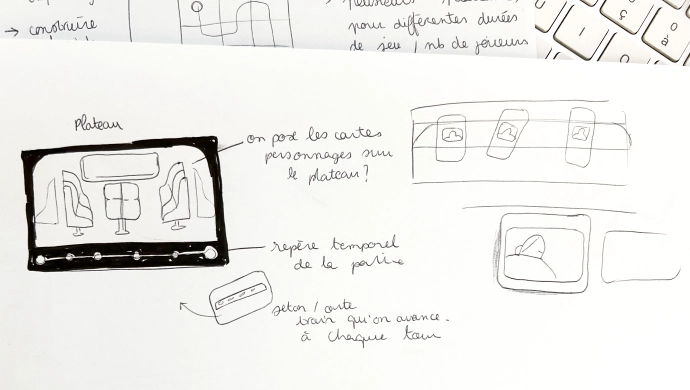 → construire
pour différentes durées
de jeu / nb de joueurs
ç
à
Plateau
on pose les cartes
personnages sur
le plateau?
repère temporel
de la partie
jeton / carte
train qu'on avance
à chaque tour